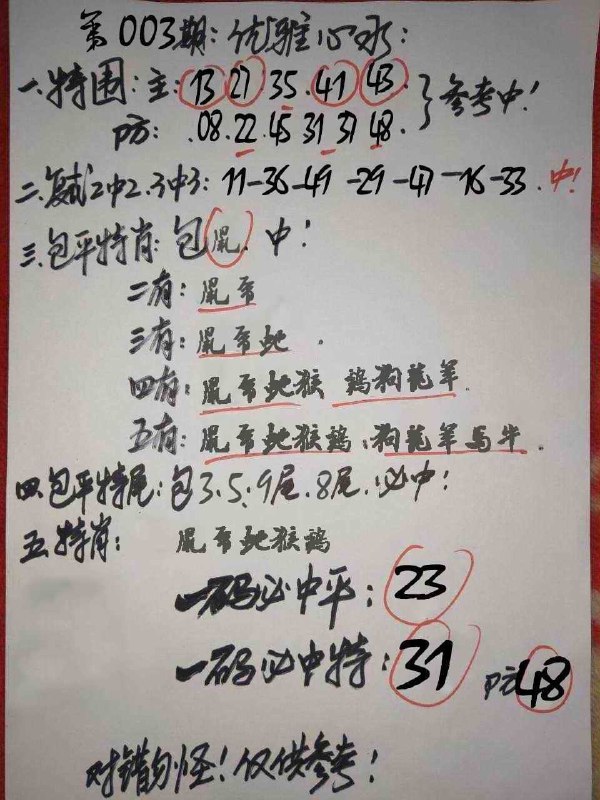 第003期:优雅心水:
一.特围:主:13 27.35.41 43
防:.08.22.45 31 37 48.
}参考中!
二.复式2中2.3中3:11-36-49-29-47-16-33.中!
三.包平特肖:包鼠.中!
二有:鼠
三有:鼠 蛇.
四有:鼠 蛇猴 鸡狗龙羊.
五有:鼠 蛇猴鸡、狗龙羊马牛.
四.包平特尾:包3.5.9尾.8尾.必中!
五.特肖: 鼠 蛇猴鸡
一码必中平:23
一码必中特:31 防48
对错勿怪!仅供参考!